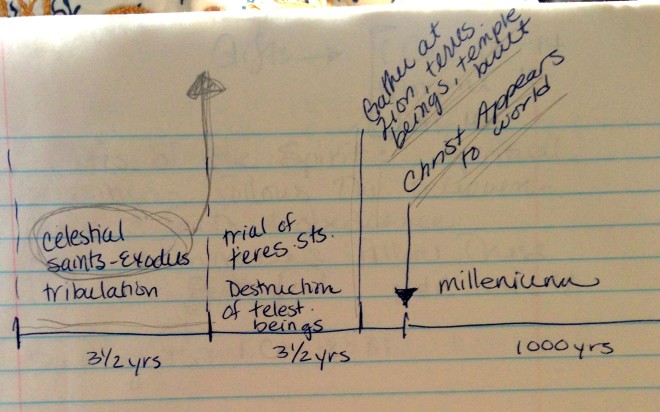 celestial
saints-Exodus
tribulation
3½ yrs
trial of
teres. sts.
Destruction
of telest.
beings
3½ yrs
Gather at
Zion, terres.
beings, temple
built
Christ Appears
to world
millenium
1000 yrs